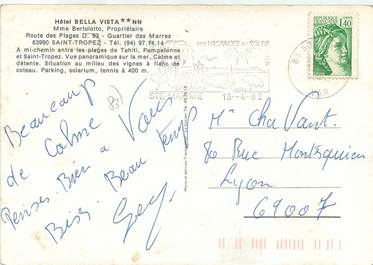 Hôtel BELLA VISTA**NN
Mme Bertolotto, Propriétaire
Route des Plages D. 93 - Quartier des Marres
83990 SAINT-TROPEZ - Tél. (94) 97.14.14
A mi-chemin entre les plages de Tahiti, Pampelonne
et Saint-Tropez. Vue panoramique sur la mer. Calme et
détente. Situation au milieu des vignes à flanc de
coteau. Parking, solarium, tennis à 400 m.
Beaucoup
de Calme
Pensons Bien a Vous
Bises. Beau temps
Gey
VACANCES au SOLEIL
STE MAXIME 13-4-82
VAR
1,40
Mr ChaVant.
80 Rue Montesquieu
Lyon
69007